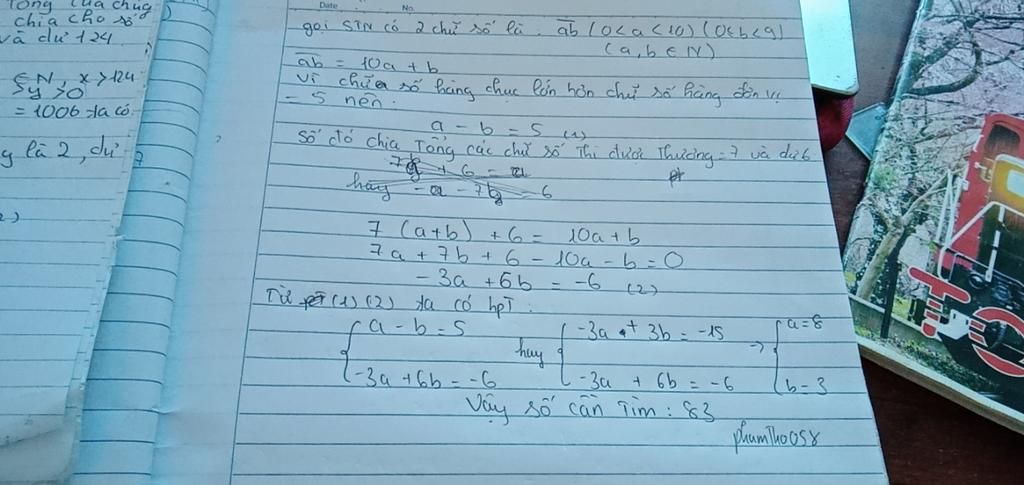 Tổng của chúng
chia cho số
và dư 124
∈ N, x > 124
y > 0
= 1006 ta có
g là 2, dư
Date No.
gọi STN có 2 chữ số là : ab (0 < a < 10) (0 ≤ b < 9)
(a, b ∈ N)
ab = 10a + b
vì chữ số hàng chục lớn hơn chữ số hàng đơn vị
= 5 nên :
a - b = 5 (1)
số đó chia Tổng các chữ số Thì được Thương = 7 và dư 6
hay
7 (a+b) + 6 = 10a + b
7a + 7b + 6 - 10a - b = 0
-3a + 6b = -6 (2)
Từ (1) (2) ta có hpT :
{ a - b = 5 hay { -3a + 3b = -15 → { a = 8
-3a + 6b = -6 -3a + 6b = -6 b = 3
Vậy số cần Tìm : 83
phamTho058